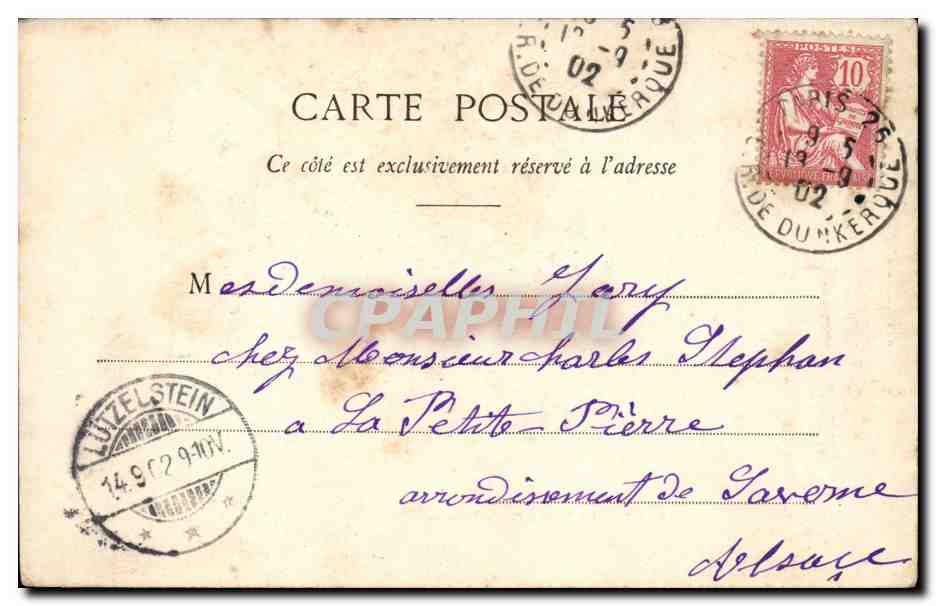 12 5
9
02
R. DE DUNKERQUE
POSTES
10
PARIS 25
9 5
13 9
02
R. DE DUNKERQUE
REPUBLIQUE FRANÇAISE
CARTE POSTALE
Ce côté est exclusivement réservé à l'adresse
Mesdemoiselles Jary
CPAPHIL
chez Monsieur Charles Stephan
a La Petite-Pierre
arrondisement de Saverne
Alsace
LÜTZELSTEIN
14.9.02 9-10V.